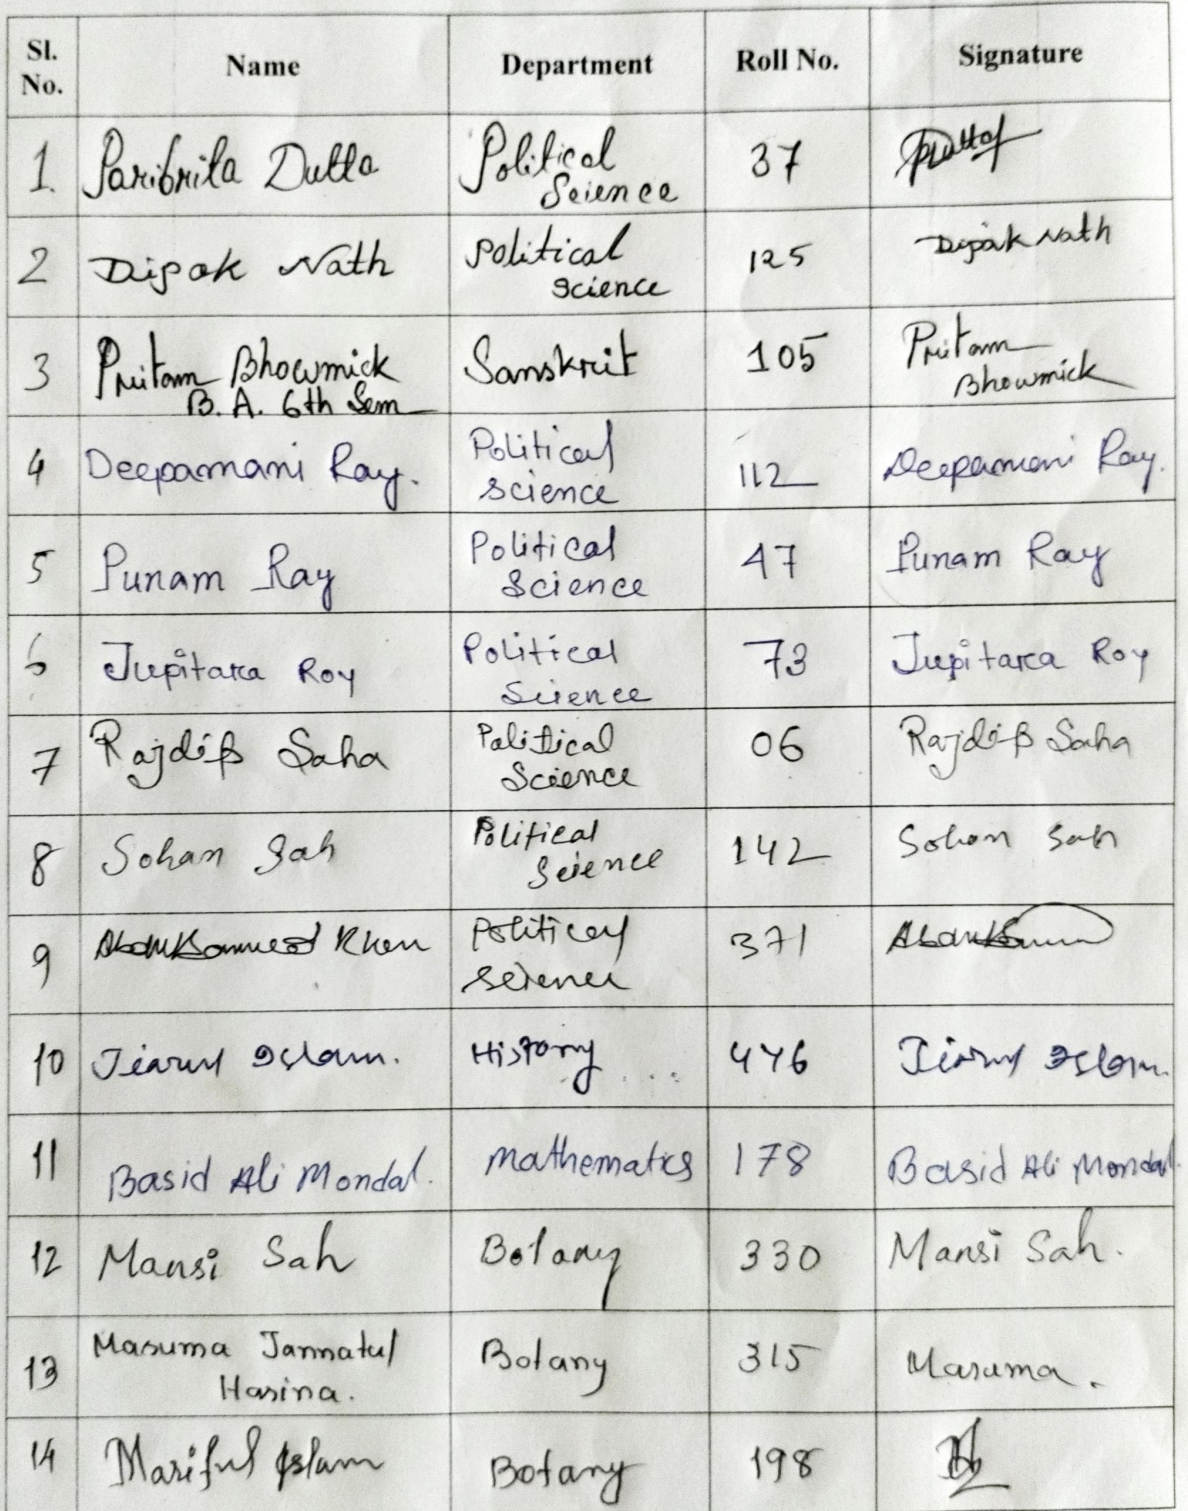 Sl. No. Name Department Roll No. Signature
1. Paribrita Dutta Political Science 37 PDutta
2 Dipak Nath Political science 125 Dipak Nath
3 Pritam Bhowmick B. A. 6th Sem Sanskrit 105 Pritam Bhowmick
4 Deepamani Ray. Political science 112 Deepamani Ray.
5 Punam Ray Political Science 47 Punam Ray
6 Jupitara Roy Political Science 73 Jupitara Roy
7 Rajdip Saha Political Science 06 Rajdip Saha
8 Sohan Sah Political Science 142 Sohan Sah
9 Khan Political Science 371
10 Jiarul Islam. History 476 Jiarul Islam.
11 Basid Ali Mondal. Mathematics 178 Basid Ali Mondal.
12 Mansi Sah Botany 330 Mansi Sah.
13 Masuma Jannatul Hasina. Botany 315 Masuma.
14 Mariful Islam Botany 198